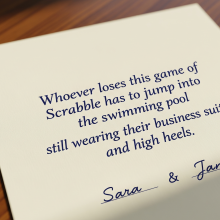 Whoever loses this game of
Scrabble has to jump into
the swimming pool
still wearing their business
and high heels.
Sara &